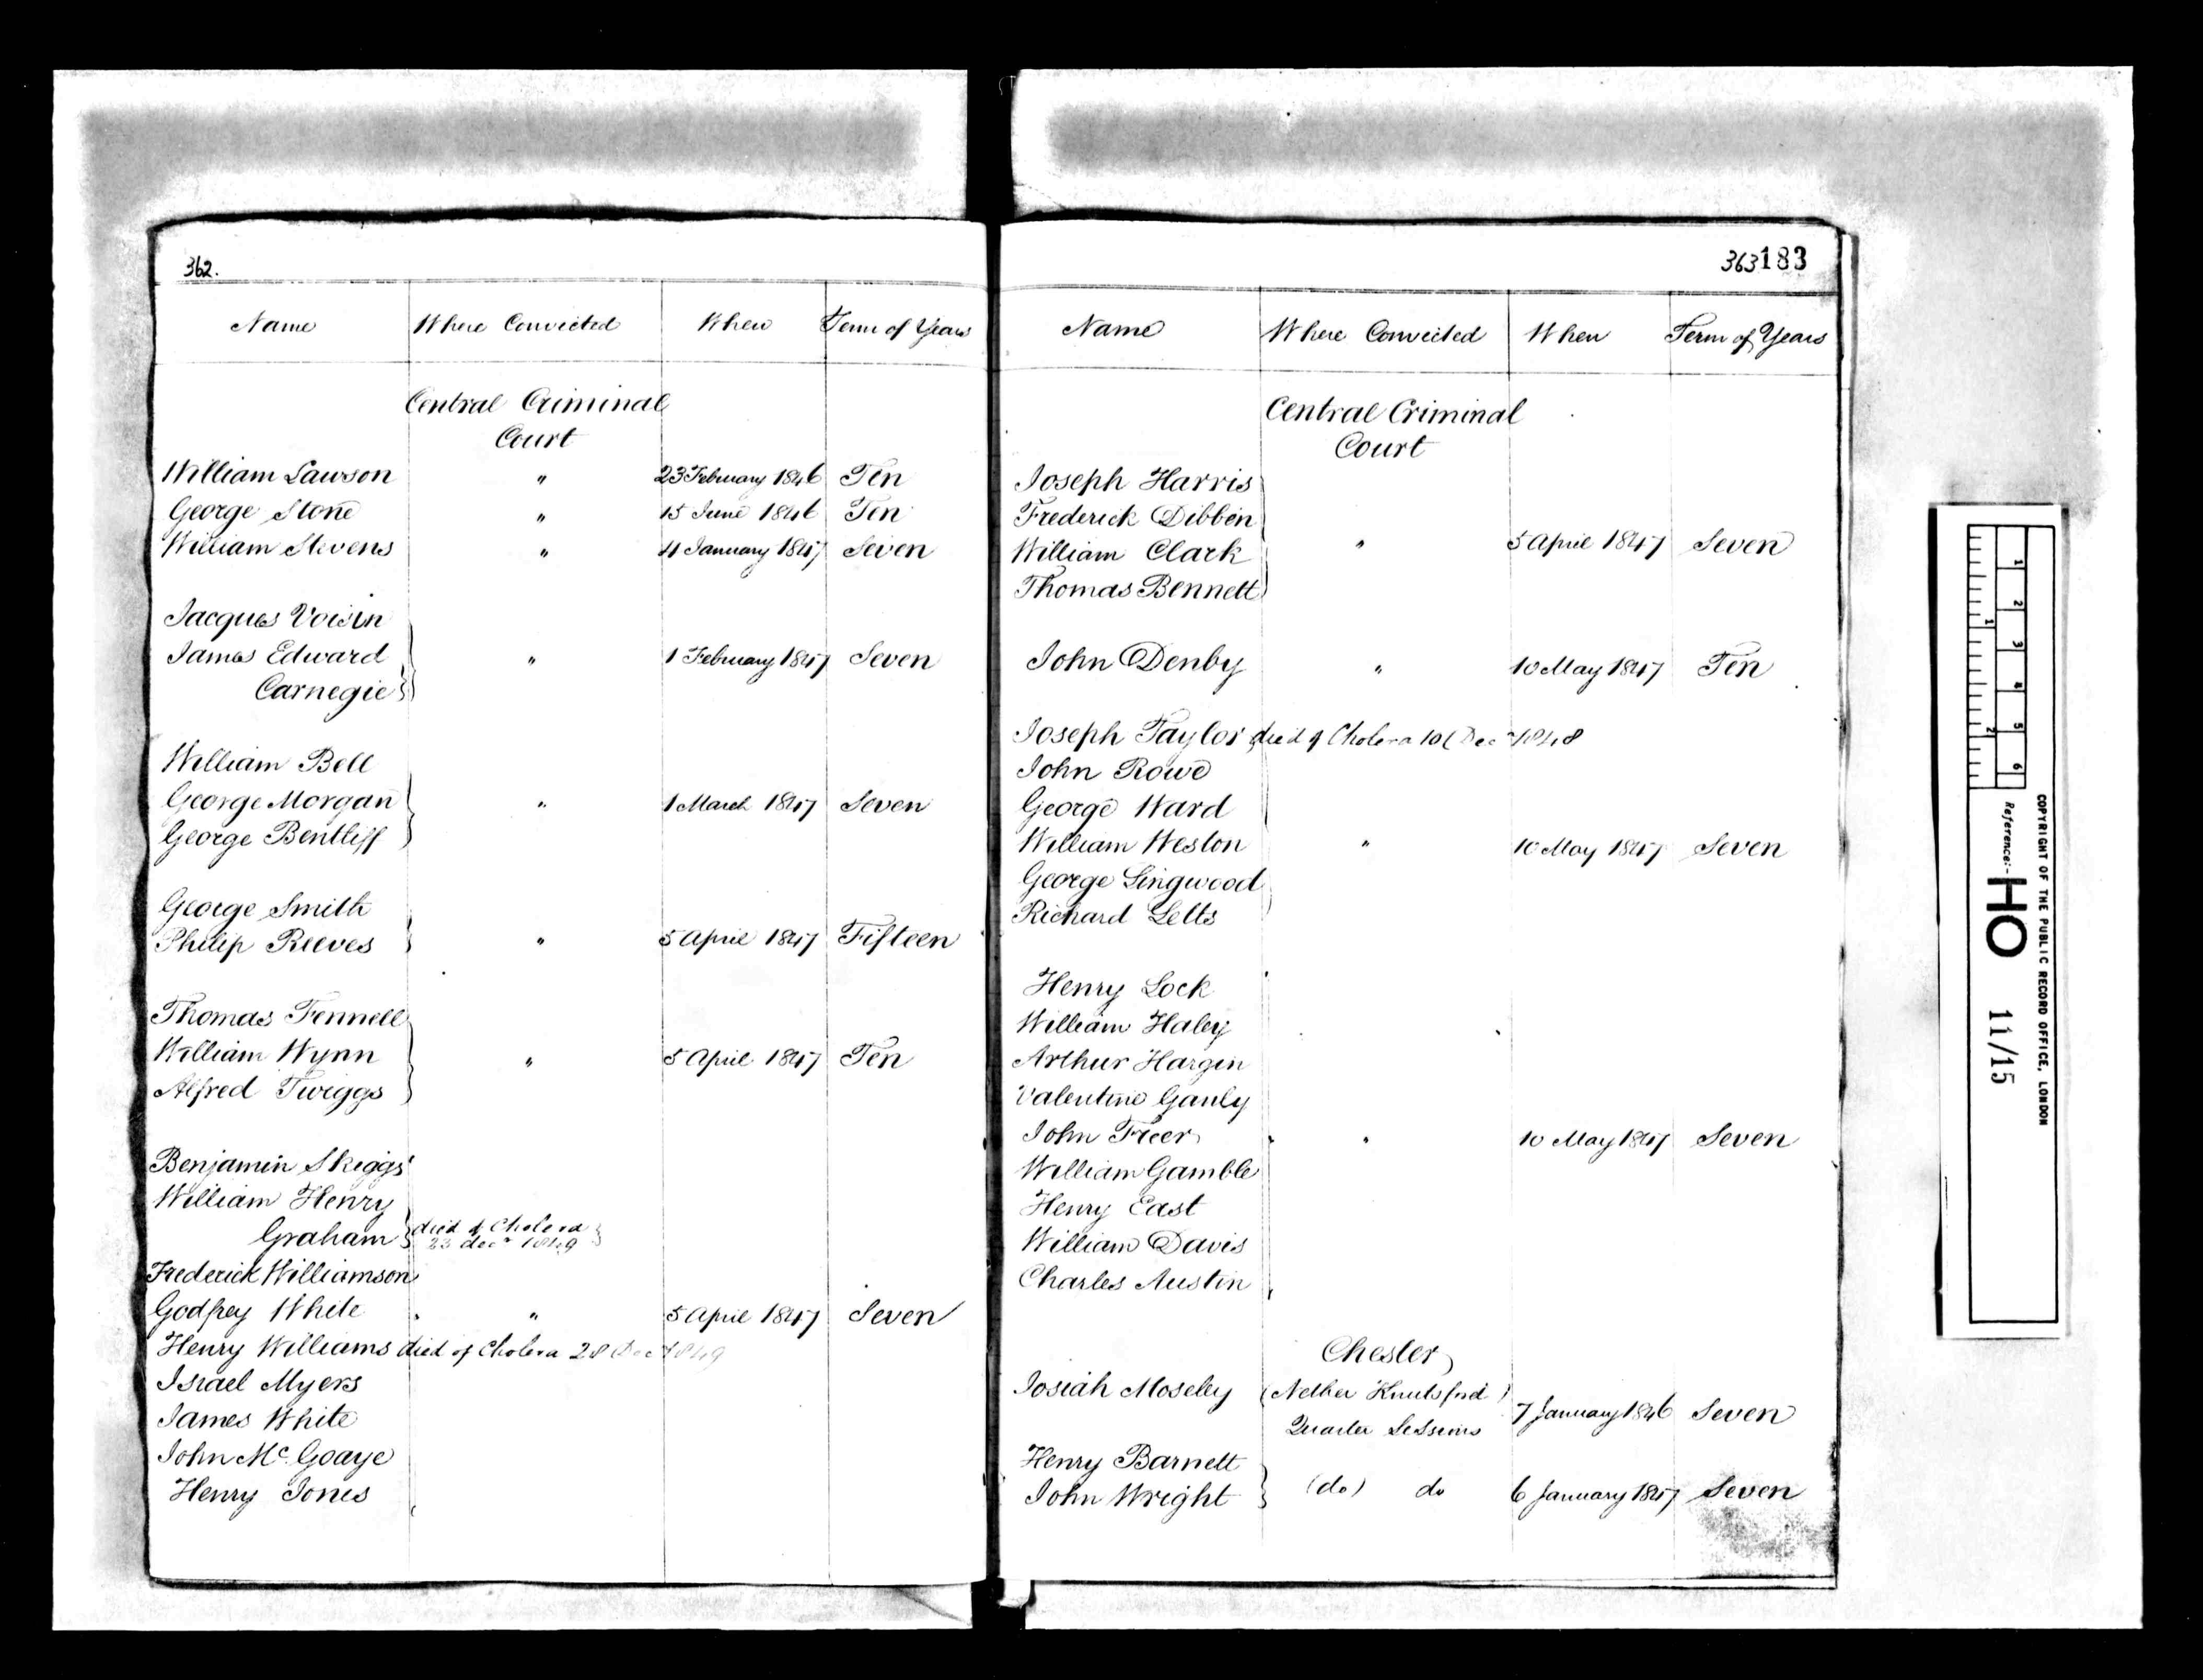 362.
Name Where Convicted When Term of Years
Central Criminal
Court
William Lawson " 23 February 1846 Ten
George Stone " 15 June 1846 Ten
William Stevens " 4 January 1847 Seven
Jacques Voisin
James Edward " 1 February 1847 Seven
Carnegie
William Bell
George Morgan " 1 March 1847 Seven
George Bentliff
George Smith
Philip Reeves " 5 April 1847 Fifteen
Thomas Fennell
William Wynn " 5 April 1847 Ten
Alfred Twiggs
Benjamin Skeggs
William Henry
Graham died of Cholera
23 decr 1849
Frederick Williamson
Godfrey White " 5 April 1847 Seven
Henry Williams died of Cholera 28 Decr 1849
Israel Myers
James White
John Mc Goaye
Henry Jones
363 183
Name Where Convicted When Term of Years
Central Criminal
Court
Joseph Harris
Frederick Dibben
William Clark " 5 April 1847 Seven
Thomas Bennett
John Denby " 10 May 1847 Ten
Joseph Taylor died of Cholera 10 Decr 1848
John Rowe
George Ward
William Weston " 10 May 1847 Seven
George Lingwood
Richard Letts
Henry Lock
William Haley
Arthur Hargin
Valentine Ganly
John Freer " 10 May 1847 Seven
William Gamble
Henry East
William Davis
Charles Austin
Chester
Josiah Moseley (Nether Knutsford)
Quarter Sessions 7 January 1846 Seven
Henry Barnett
John Wright (do) do 6 January 1847 Seven
1 2 3 4 5 6
1 2
COPYRIGHT OF THE PUBLIC RECORD OFFICE, LONDON
Reference:- HO 11/15